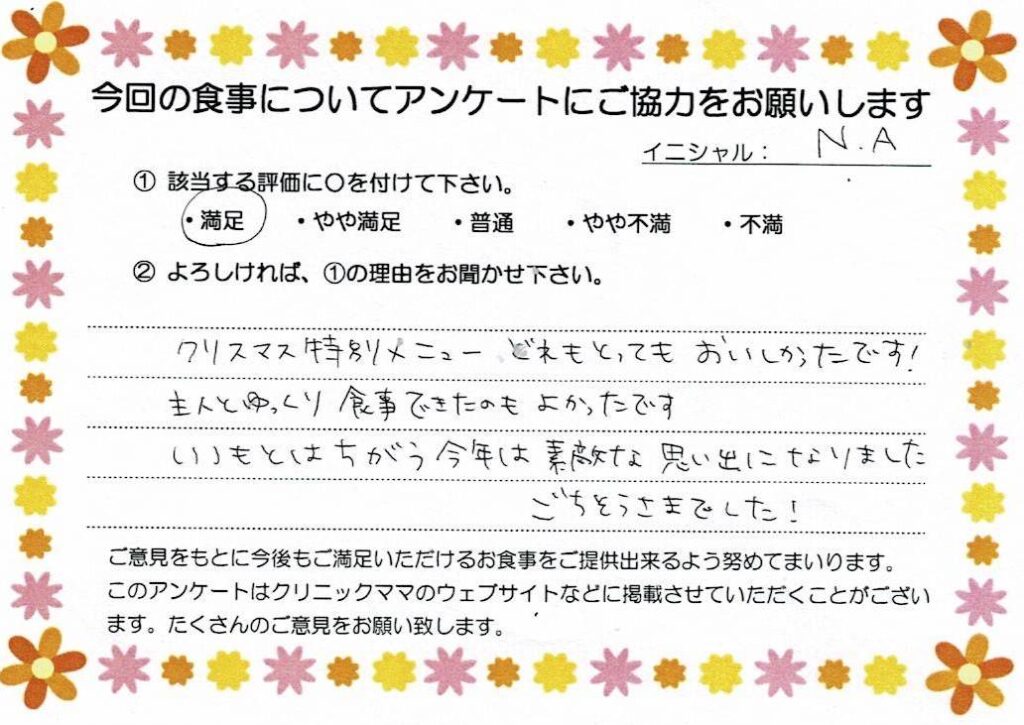 今回の食事についてアンケートにご協力をお願いします
イニシャル： N.A
① 該当する評価に〇を付けて下さい。
・満足 ・やや満足 ・普通 ・やや不満 ・不満
② よろしければ、①の理由をお聞かせ下さい。
クリスマス特別メニュー どれもとっても おいしかったです！
主人とゆっくり 食事できたのも よかったです
いつもとはちがう 今年は 素敵な 思い出になりました
ごちそうさまでした！
ご意見をもとに今後もご満足いただけるお食事をご提供出来るよう努めてまいります。
このアンケートはクリニックママのウェブサイトなどに掲載させていただくことがござい
ます。たくさんのご意見をお願い致します。